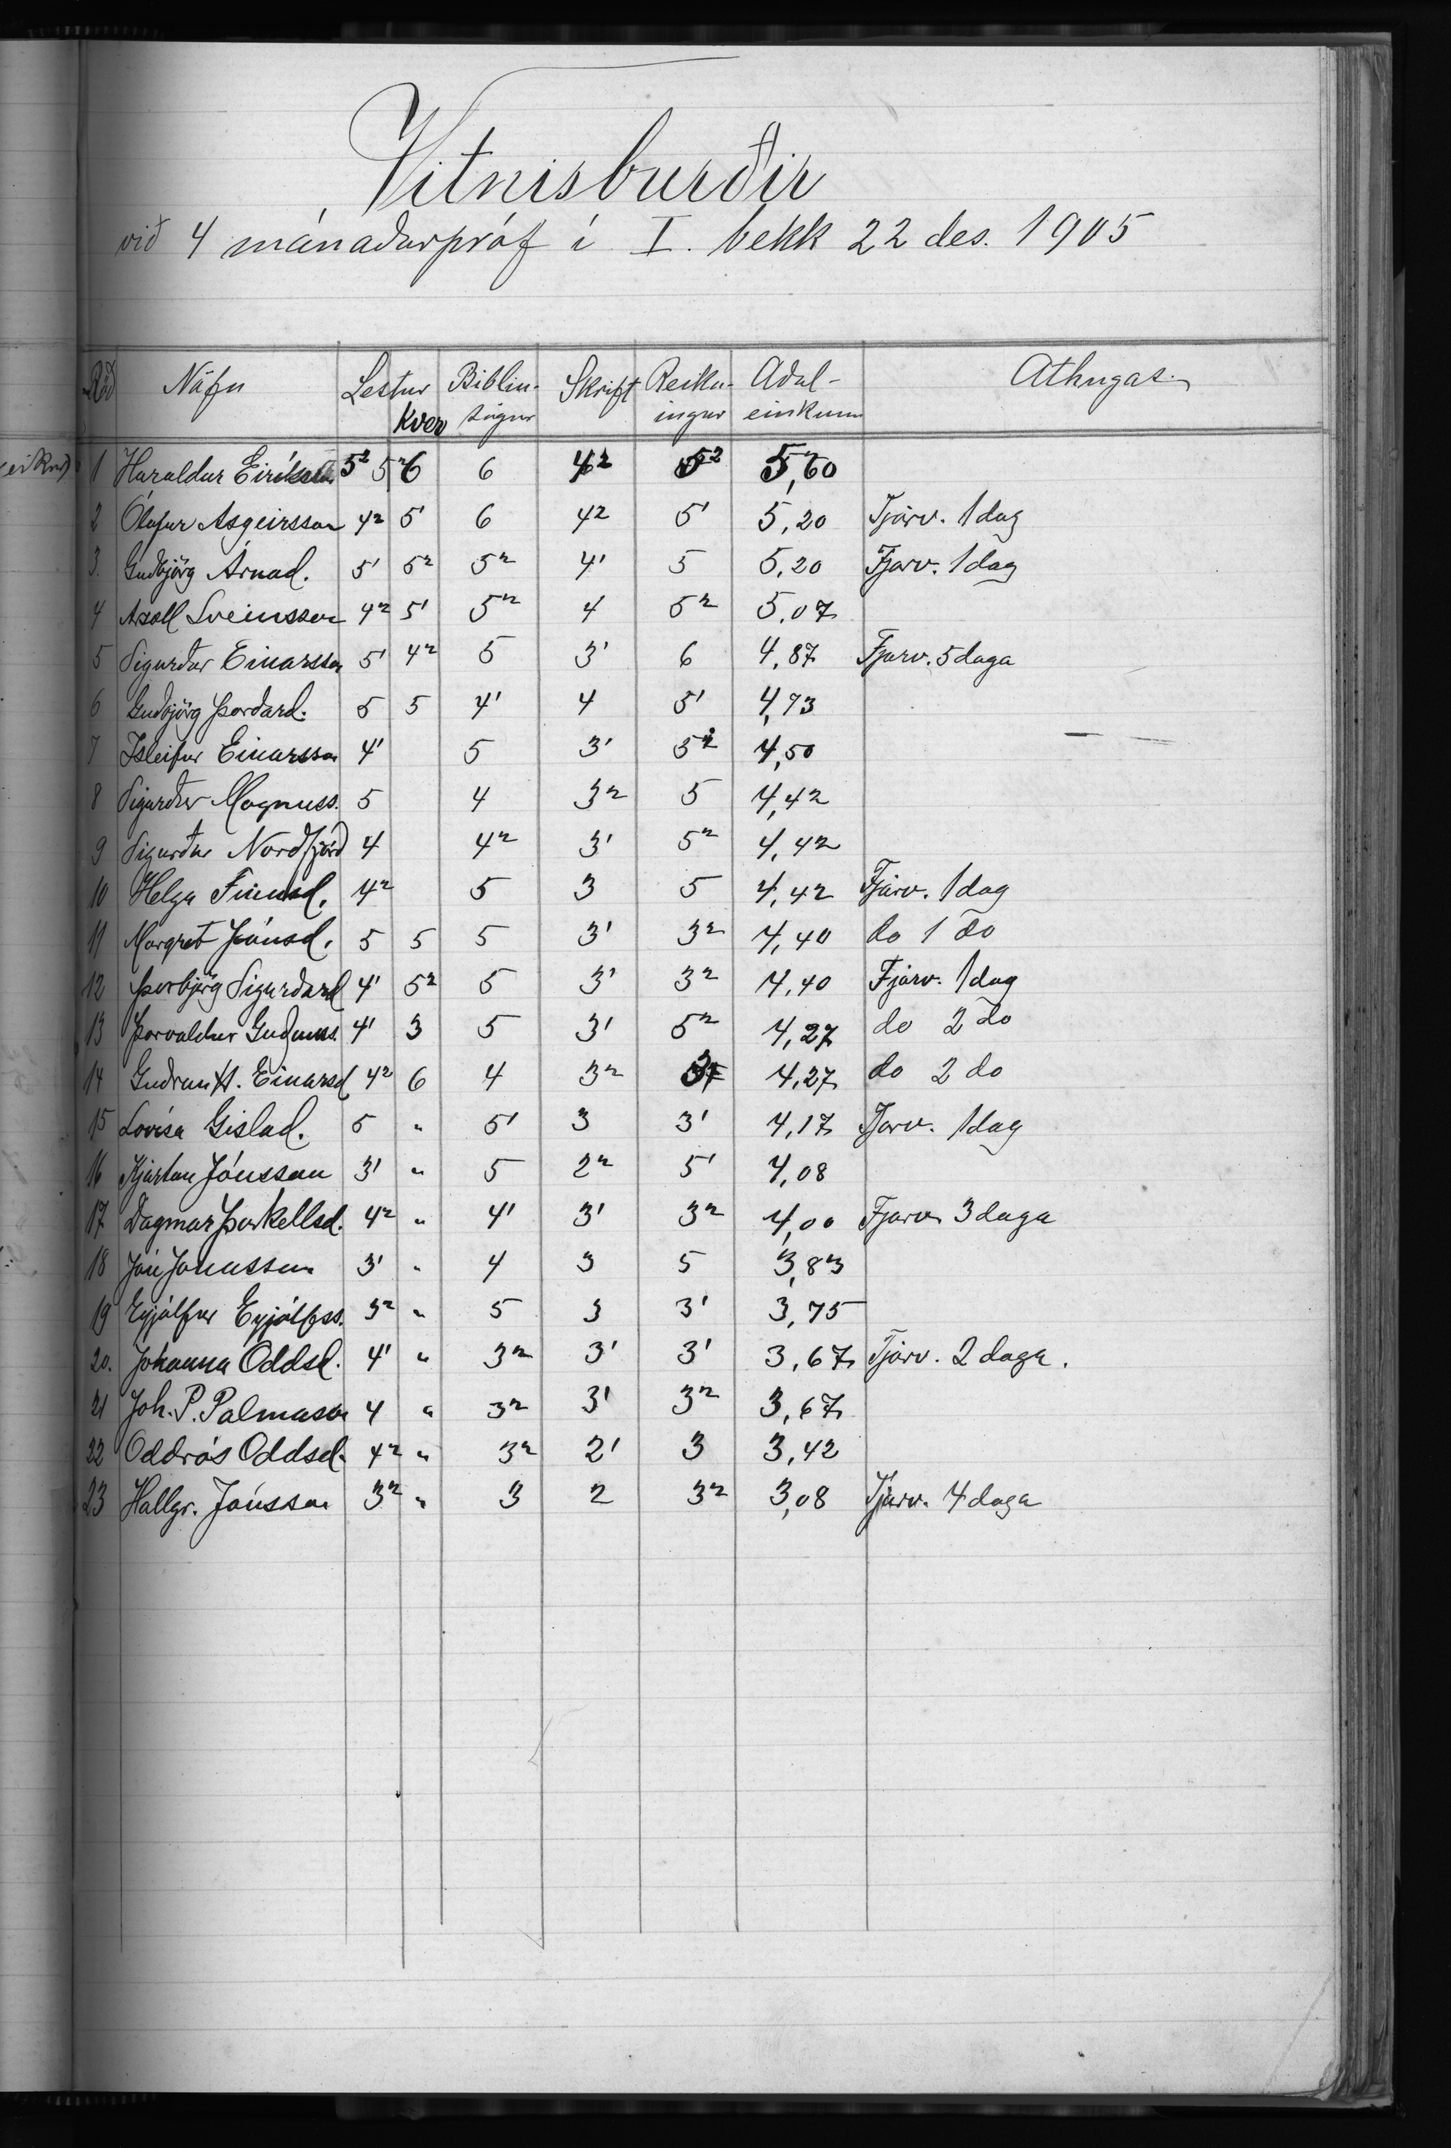 Vitnisburðir
við 4 mánaðarpróf í I. bekk 22 des. 1905
Röð Nöfn Lestur Kver Biblíu-sögur Skrift Reikn-ingur Aðal-einkunn Athugas.
1 Haraldur Eiríkss. 5² 6 6 4² 5² 5,60
2 Ólafur Asgeirsson 4² 5' 6 4² 5' 5,20 Fjárv. 1 dag
3. Guðbjörg Árnad. 5' 5² 5² 4' 5 5,20 Fjarv. 1 dag
4 Axell Sveinsson 4² 5' 5² 4 5² 5,07
5 Sigurður Einarsson 5' 4² 5 3' 6 4,87 Fjarv. 5 daga
6 Guðbjörg Þorðard. 5 5 4' 4 5' 4,73
7 Isleifur Einarsson 4' 5 3' 5² 4,50
8 Sigurður Magnuss. 5 4 3² 5 4,42
9 Sigurður Norðfjörð 4 4² 3' 5² 4,42
10 Helga Finnsd. 4² 5 3 5 4,42 Fjarv. 1 dag
11 Margrét Jónsd. 5 5 5 3' 3² 4,40 do 1 do
12 Þorbjörg Sigurðard 4' 5² 5 3' 3² 4,40 Fjarv. 1 dag
13 Þorvaldur Guðmuss. 4' 3 5 3' 5² 4,27 do 2 do
14 Guðrun H. Einarsd 4² 6 4 3² 3 4,27 do 2 do
15 Lovísa Gislad. 5 " 5' 3 3' 4,17 Fjarv. 1 dag
16 Kjartan Jónsson 3' " 5 2² 5' 4,08
17 Dagmar Þorkellsd. 4² " 4' 3' 3² 4,00 Fjarv 3 daga
18 Jón Jonusson 3' " 4 3 5 3,83
19 Eyjólfur Eyjólfss. 3² " 5 3 3' 3,75
20. Johanna Oddsd. 4' " 3² 3' 3' 3,67 Fjarv. 2 daga.
21 Joh. P. Palmason 4 " 3² 3' 3² 3,67
22 Oddrós Oddsd. 4² " 3² 2' 3 3,42
23 Hallgr. Jónsson 3² " 3 2 3² 3,08 Fjarv. 4 daga